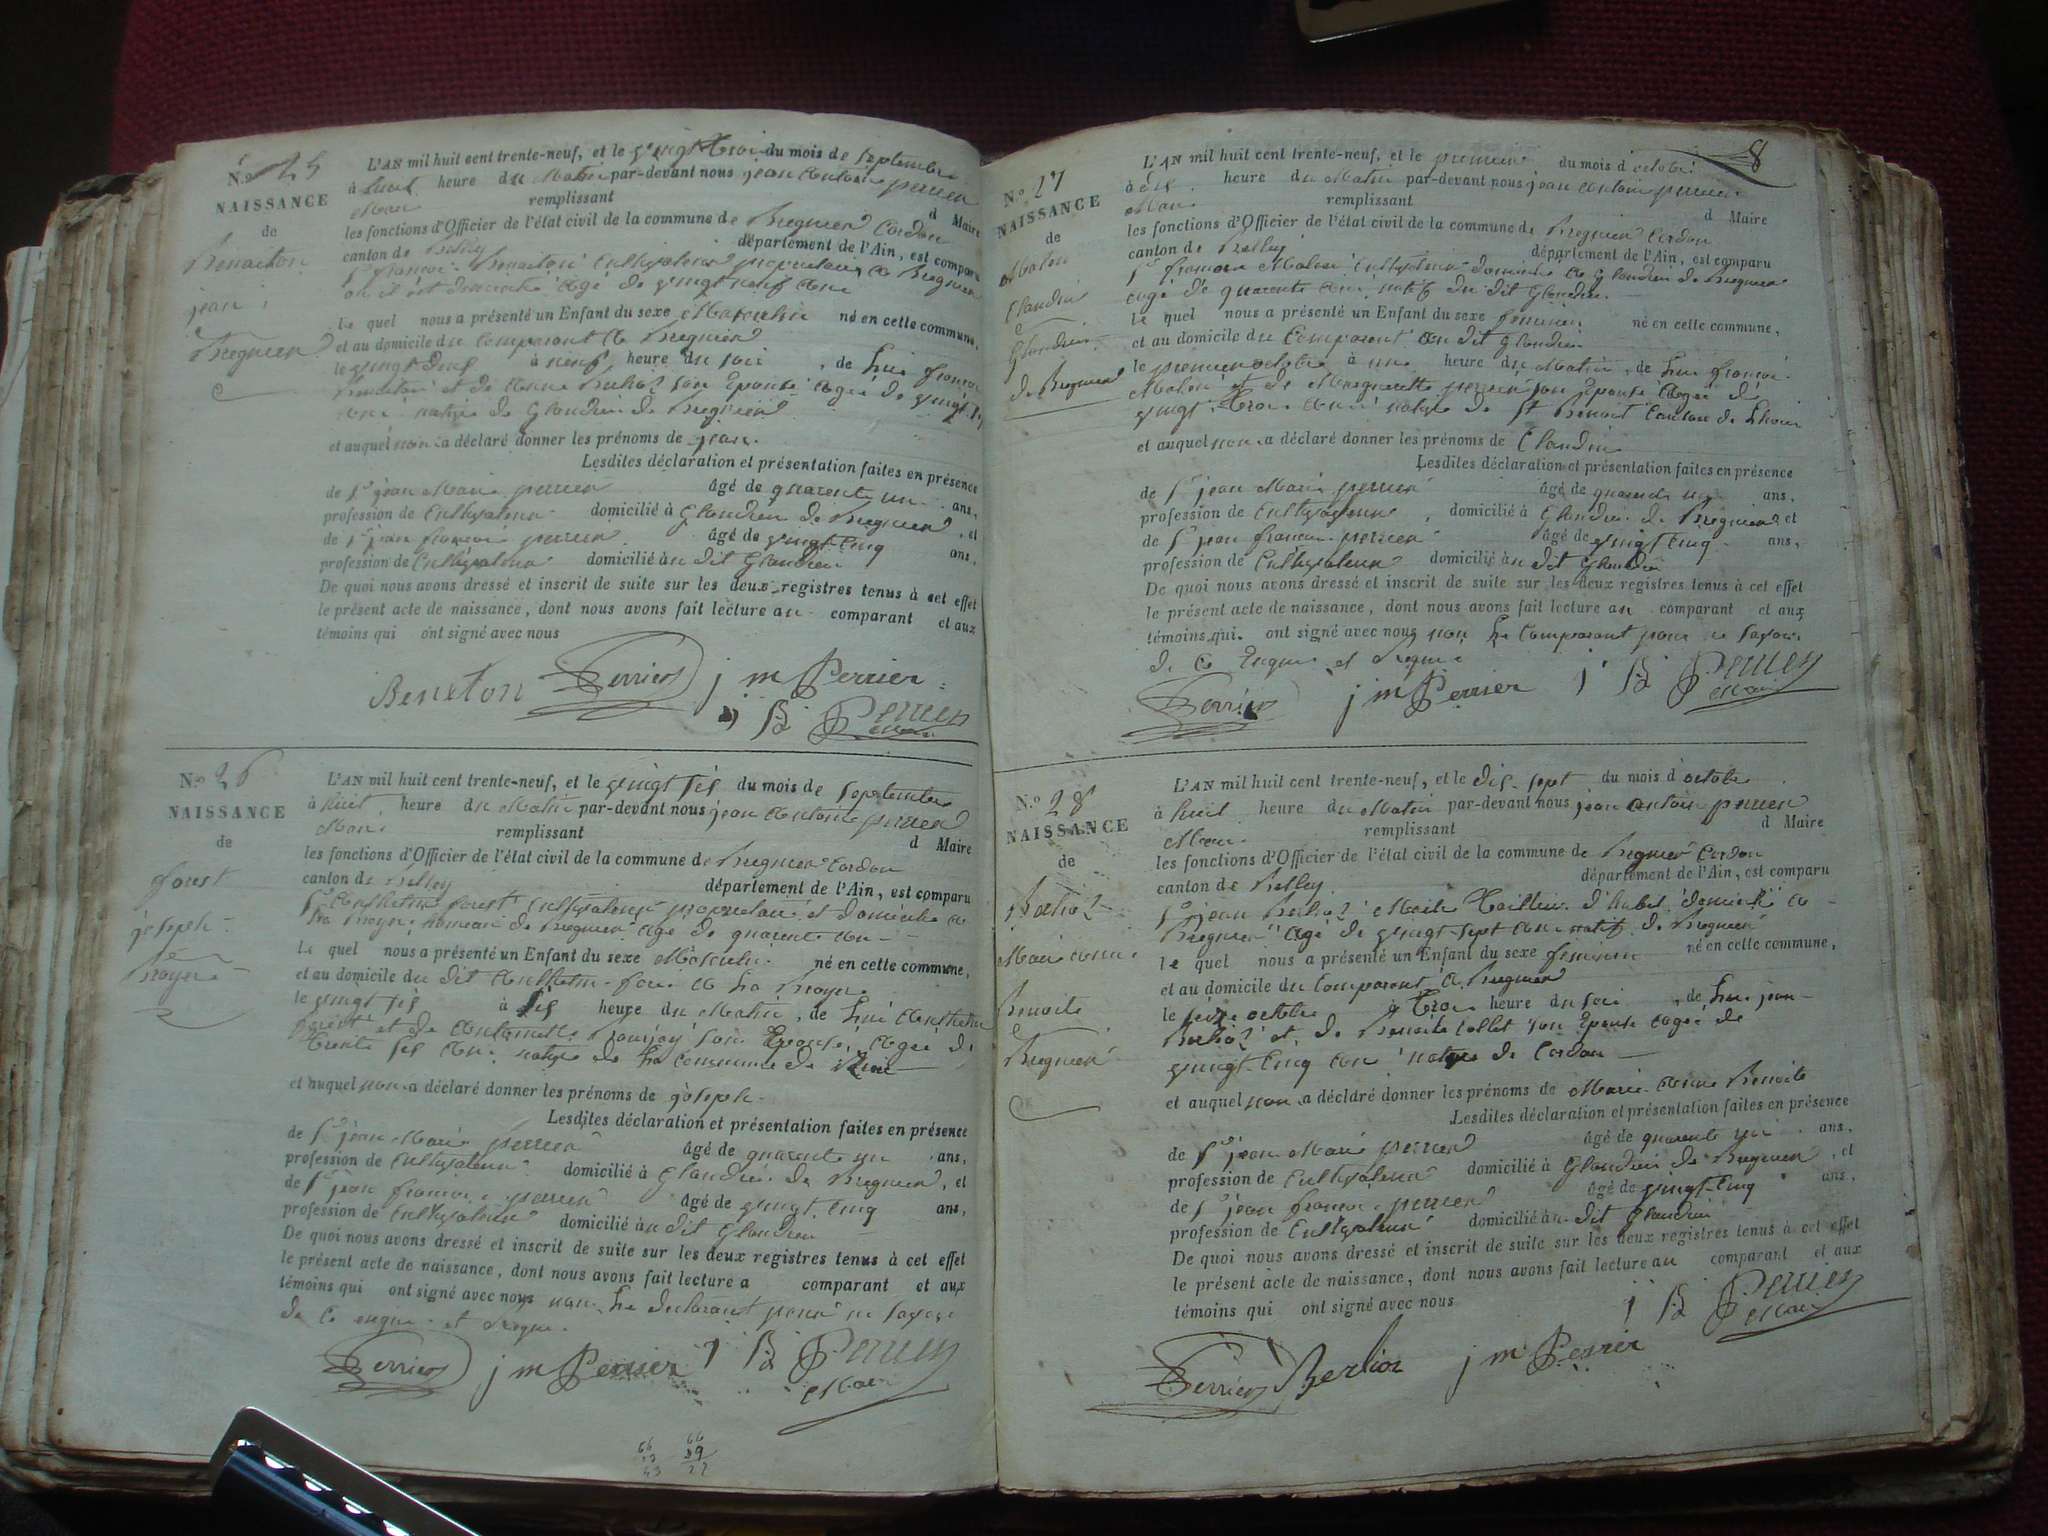 N.º 25
NAISSANCE
de
Benaiton
jean
Bregnier
L'AN mil huit cent trente-neuf, et le vingt trois du mois de septembre
à huit heure du Matin par-devant nous jean antoine perrier
Maire remplissant d Maire
les fonctions d'Officier de l'état civil de la commune de Bregnier Cordon
canton de Belley département de l'Ain, est comparu
Sr françois Benaiton Cultivateur proprietaire a Bregnier
où il est domicilié agé de vingt neuf ans
Le quel nous a présenté un Enfant du sexe Masculin né en cette commune,
et au domicile du Comparant a Bregnier
le vingt deux à neuf heure du soir , de lui françois
Benaiton et de anne Berlioz son Epouse agée de vingt
ans native de Glandieu de Bregnier
et auquel non a déclaré donner les prénoms de jean.
Lesdites déclaration et présentation faites en présence
de Sr jean Marie perrier âgé de quarente un ans,
profession de Cultivateur domicilié à Glandieu de Bregnier, et
de Sr jean françois perrier âgé de vingt Cinq ans,
profession de Cultivateur domicilié à u dit Glandieu
De quoi nous avons dressé et inscrit de suite sur les deux registres tenus à cet effet
le présent acte de naissance, dont nous avons fait lecture au comparant et aux
témoins qui ont signé avec nous
Beneton Perrier j m Perrier
j B Perrier
Maire
N.º 26
NAISSANCE
de
forest
joseph
L'AN mil huit cent trente-neuf, et le vingt six du mois de septembre
à huit heure du Matin par-devant nous jean antoine perrier
Maire remplissant d Maire
les fonctions d'Officier de l'état civil de la commune de Bregnier Cordon
canton de Belley département de l'Ain, est comparu
Sr Anthelme forest Cultivateur proprietaire et domicilié a
hameau de Bregnier agé de quarente ans
Le quel nous a présenté un Enfant du sexe Masculin né en cette commune,
et au domicile du dit Anthelme
le vingt six à six heure du Matin, de lui Anthelme
forest et de Antoinette son Epouse, agée de
trente six ans native de la commune de
et auquel non a déclaré donner les prénoms de joseph
Lesdites déclaration et présentation faites en présence
de Sr jean Marie perrier âgé de quarente un ans,
profession de Cultivateur domicilié à Glandieu de Bregnier, et
de Sr jean françois perrier âgé de vingt Cinq ans,
profession de Cultivateur domicilié à u dit Glandieu
De quoi nous avons dressé et inscrit de suite sur les deux registres tenus à cet effet
le présent acte de naissance, dont nous avons fait lecture a comparant et aux
témoins qui ont signé avec nous non le declarant pour ne savoir
de ce enquis et requis.
Perrier j m Perrier j B Perrier
Maire
66 66
39
27
8
N.º 27
NAISSANCE
de
Claudine
Glandieu
de Bregnier
L'AN mil huit cent trente-neuf, et le premier du mois d'octobre
à dix heure du Matin par-devant nous jean antoine perrier
Maire remplissant d Maire
les fonctions d'Officier de l'état civil de la commune de Bregnier Cordon
canton de Belley département de l'Ain, est comparu
Sr françois Cultivateur domicilié a Glandieu de Bregnier
agé de quarente ans natif du dit Glandieu
Le quel nous a présenté un Enfant du sexe feminin né en cette commune,
et au domicile du Comparant au dit Glandieu
le premier octobre à une heure du Matin, de lui françois
et de Marguerite perrier son Epouse agée de
vingt trois ans native de St Benoit Canton de Lhuis
et auquel non a déclaré donner les prénoms de Claudine
Lesdites déclaration et présentation faites en présence
de Sr jean Marie perrier âgé de quarente un ans,
profession de Cultivateur, domicilié à Glandieu de Bregnier et
de Sr jean françois perrier âgé de vingt Cinq ans,
profession de Cultivateur domicilié à u dit Glandieu
De quoi nous avons dressé et inscrit de suite sur les deux registres tenus à cet effet
le présent acte de naissance, dont nous avons fait lecture au comparant et aux
témoins qui ont signé avec nous non le Comparant pour ne savoir
de ce enquis et requis
Perrier j m Perrier j B Perrier
Maire
N.º 28
NAISSANCE
de
Berlioz
Marie anne
Benoite
Bregnier
L'AN mil huit cent trente-neuf, et le dix sept du mois d'octobre
à huit heure du Matin par-devant nous jean antoine perrier
Maire remplissant d Maire
les fonctions d'Officier de l'état civil de la commune de Bregnier Cordon
canton de Belley département de l'Ain, est comparu
Sr jean Berlioz Maitre Tailleur d'habit domicilié a
Bregnier agé de vingt sept ans natif de Bregnier
le quel nous a présenté un Enfant du sexe feminin né en cette commune,
et au domicile du Comparant a Bregnier
le seize octobre à trois heure du soir , de lui jean
Berlioz et de Benoite Collet son Epouse agée de
vingt Cinq ans native de Cordon
et auquel non a déclaré donner les prénoms de Marie anne Benoite
Lesdites déclaration et présentation faites en présence
de Sr jean Marie perrier âgé de quarente un ans,
profession de Cultivateur domicilié à Glandieu de Bregnier, et
de Sr jean françois perrier âgé de vingt Cinq ans,
profession de Cultivateur domicilié à u dit Glandieu
De quoi nous avons dressé et inscrit de suite sur les deux registres tenus à cet effet
le présent acte de naissance, dont nous avons fait lecture au comparant et aux
témoins qui ont signé avec nous j B Perrier
Maire
Perrier Berlioz j m Perrier